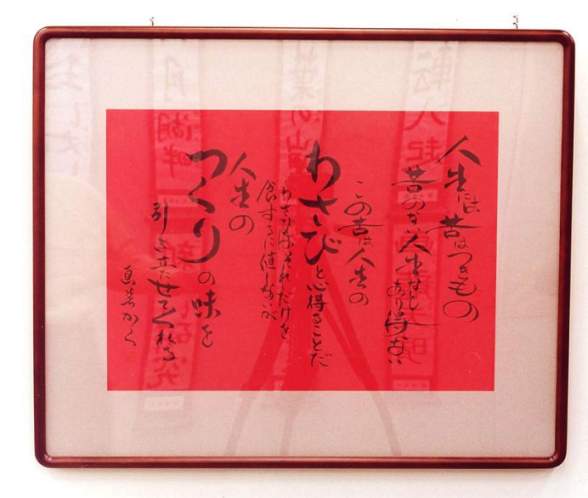 人生には苦はつきもの
苦のない人生 あり得ない
この苦は人生の
わさびと心得ることだ
わさびはそれだけを
食するに値しないが
人生の
つくりの味を
引き立たせてくれる
かく